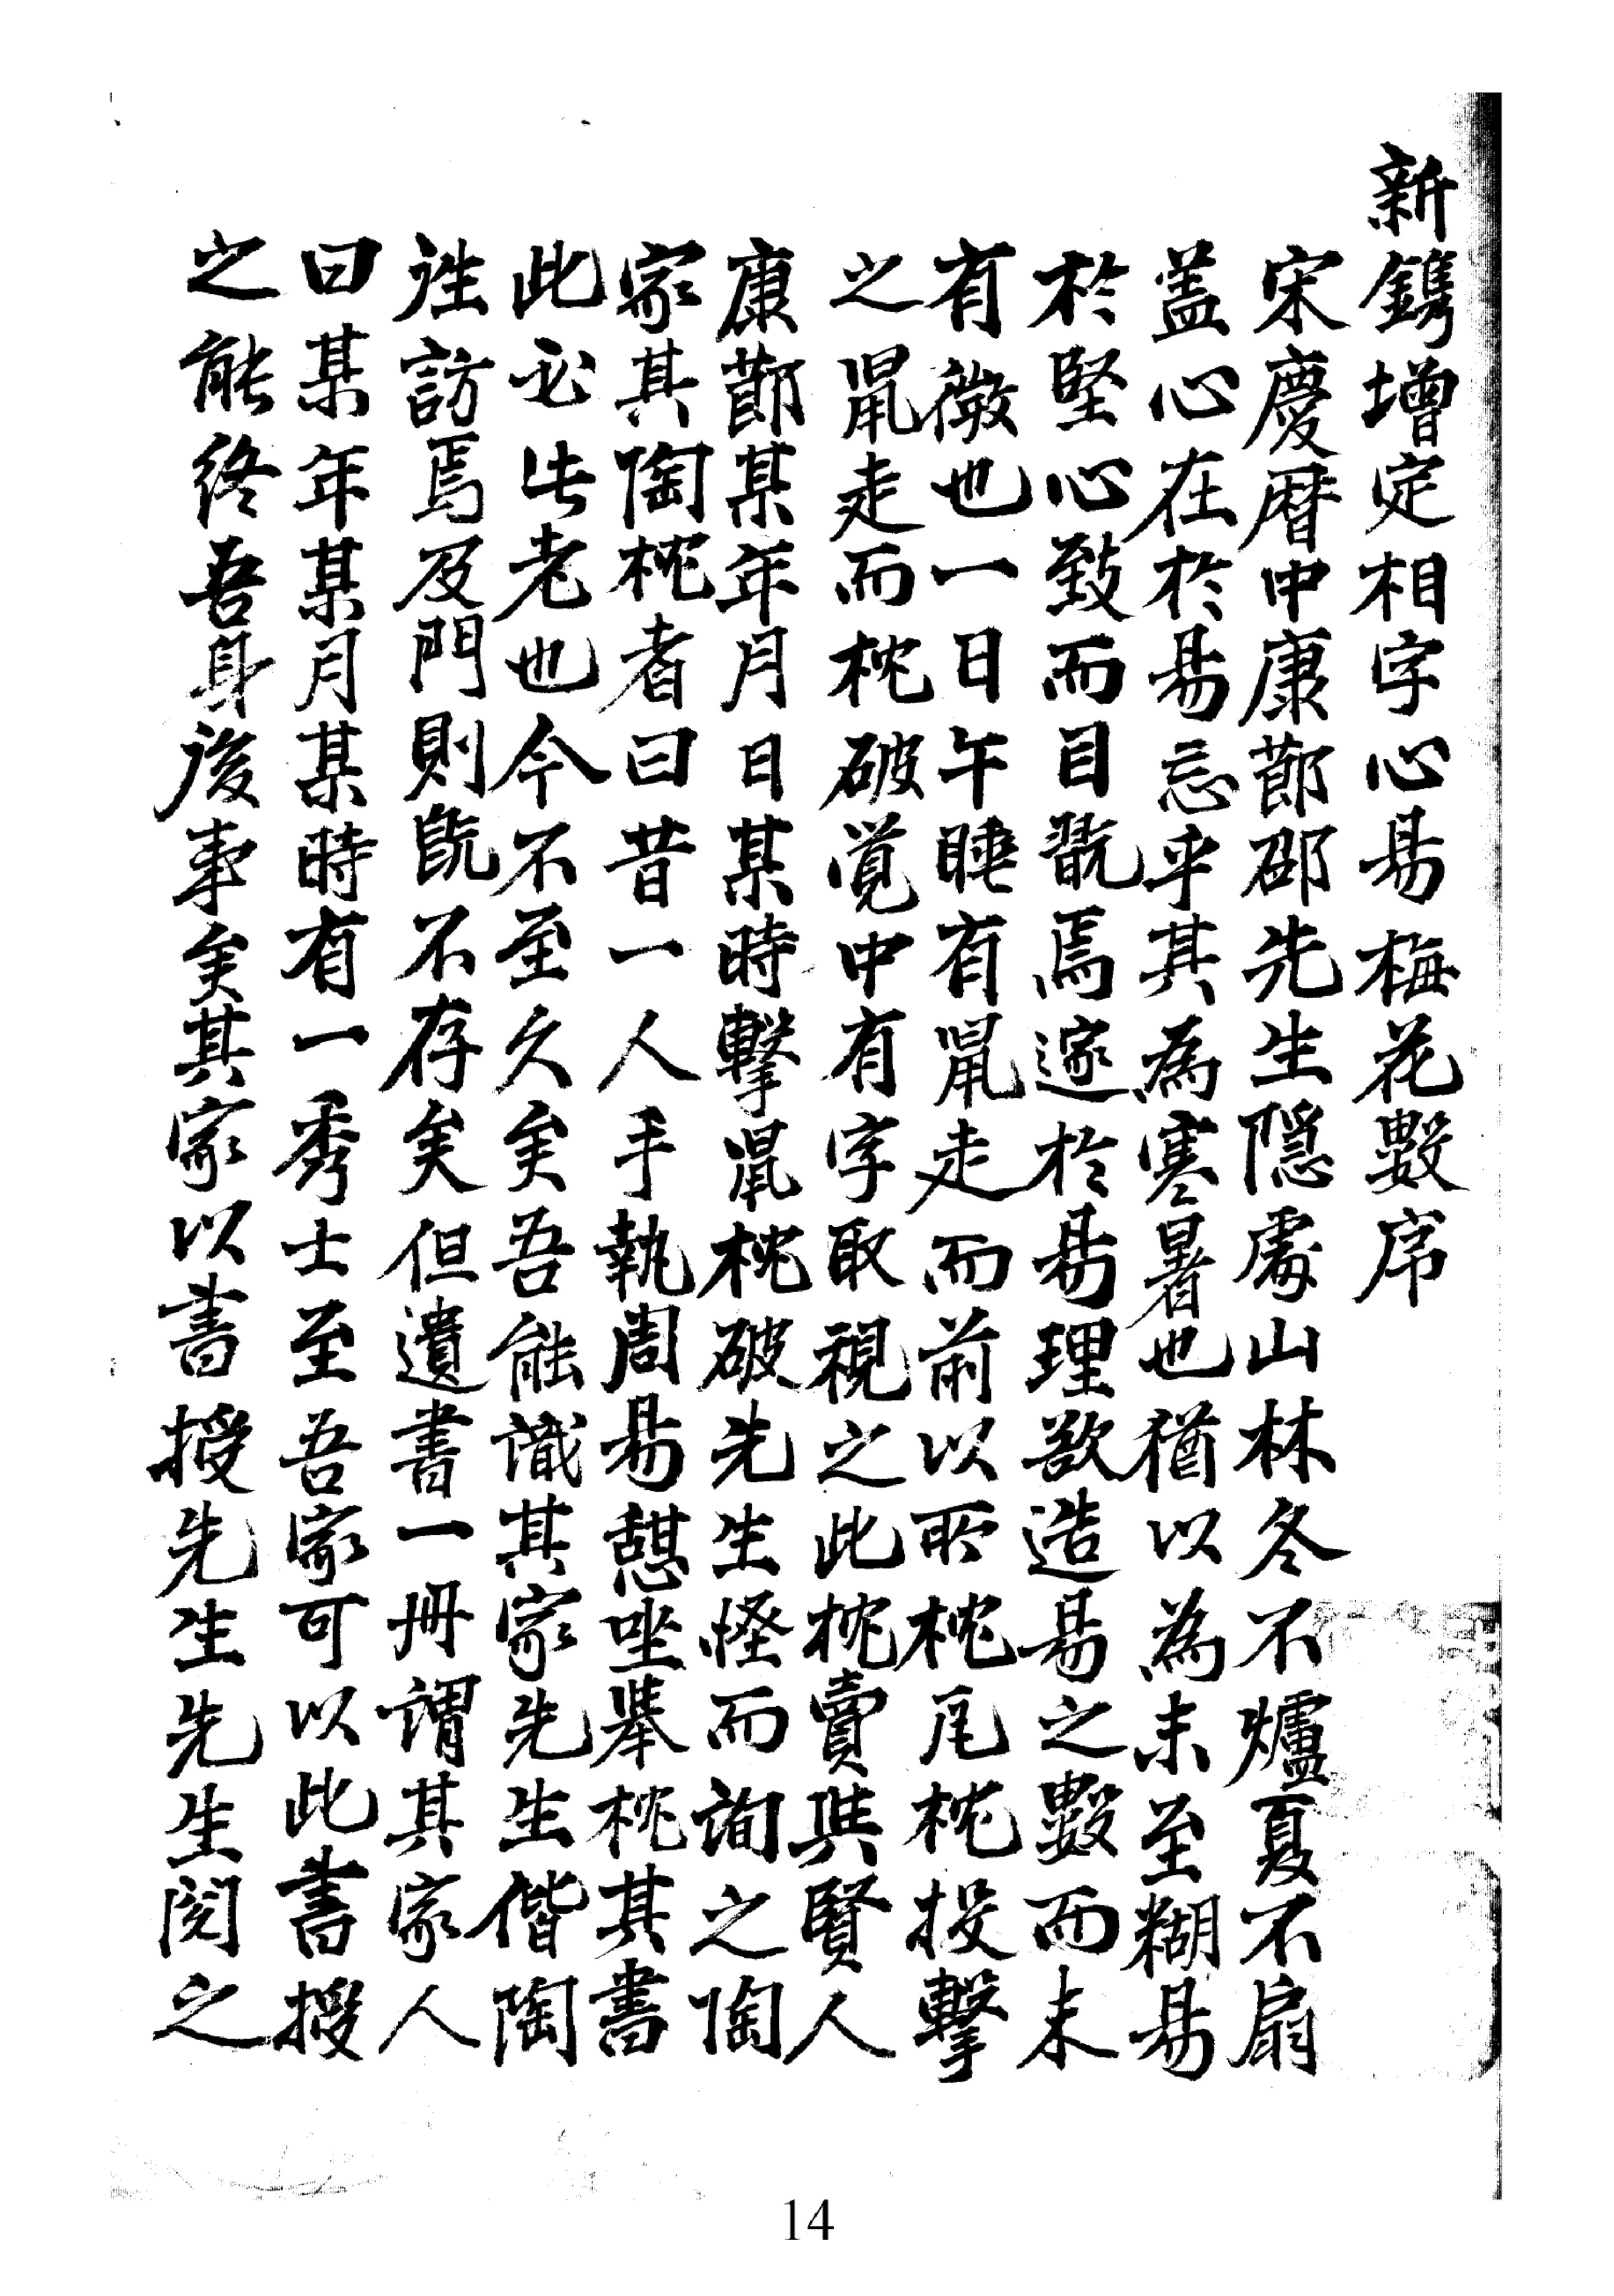 新鐫增定相字心易梅花數序
宋慶曆中康節邵先生隱處山林冬不爐夏不扇
盖心在於易忘乎其為寒暑也猶以為未至糊易
於堅心致而目翫焉邃於易理欲造易之數而未
有徵也一日午睡有鼠走而前以所枕瓦枕投擊
之鼠走而枕破覺中有字取視之此枕賣與賢人
康節某年月日某時擊鼠枕破先生怪而詢之陶
家其陶枕者曰昔一人手執周易憇坐舉枕其書
此必此老也今不至久矣吾能識其家先生偕陶
徃訪焉及門則旣不存矣但遺書一冊謂其家人
曰某年某月某時有一秀士至吾家可以此書授
之能終吾身後事矣其家以書授先生先生閱之
14